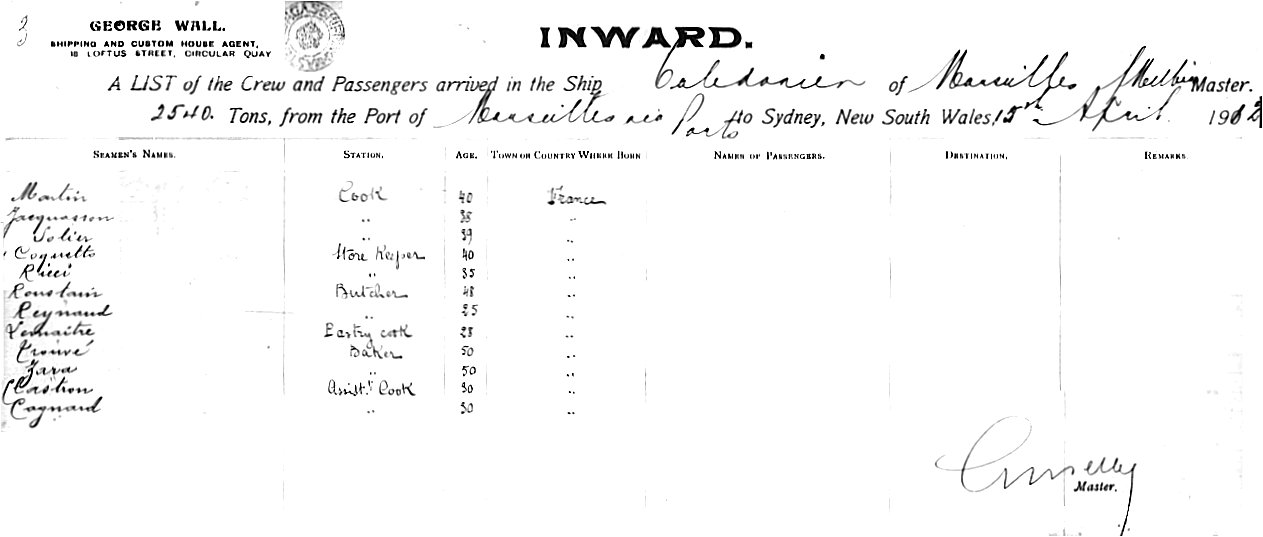 3
GEORGE WALL.
SHIPPING AND CUSTOM HOUSE AGENT,
18 LOFTUS STREET, CIRCULAR QUAY
INWARD.
A LIST of the Crew and Passengers arrived in the Ship Caledonien of Marseilles Master.
2540. Tons, from the Port of Marseilles via Ports to Sydney, New South Wales, 15th April 190
SEAMEN'S NAMES. STATION. AGE. TOWN OR COUNTRY WHERE BORN NAMES OF PASSENGERS. DESTINATION. REMARKS
Martin Cook 40 France
Jacquasson " 38 "
Solier " 39 "
Coquetto Store Keeper 40 "
Ricci " 35 "
Roustain Butcher 48 "
Reynaud " 25 "
Lemaitre Pastry cook 28 "
Trouvé Baker 50 "
Zara " 50 "
Castion Assist.t Cook 30 "
Cognard " 30 "
Master.